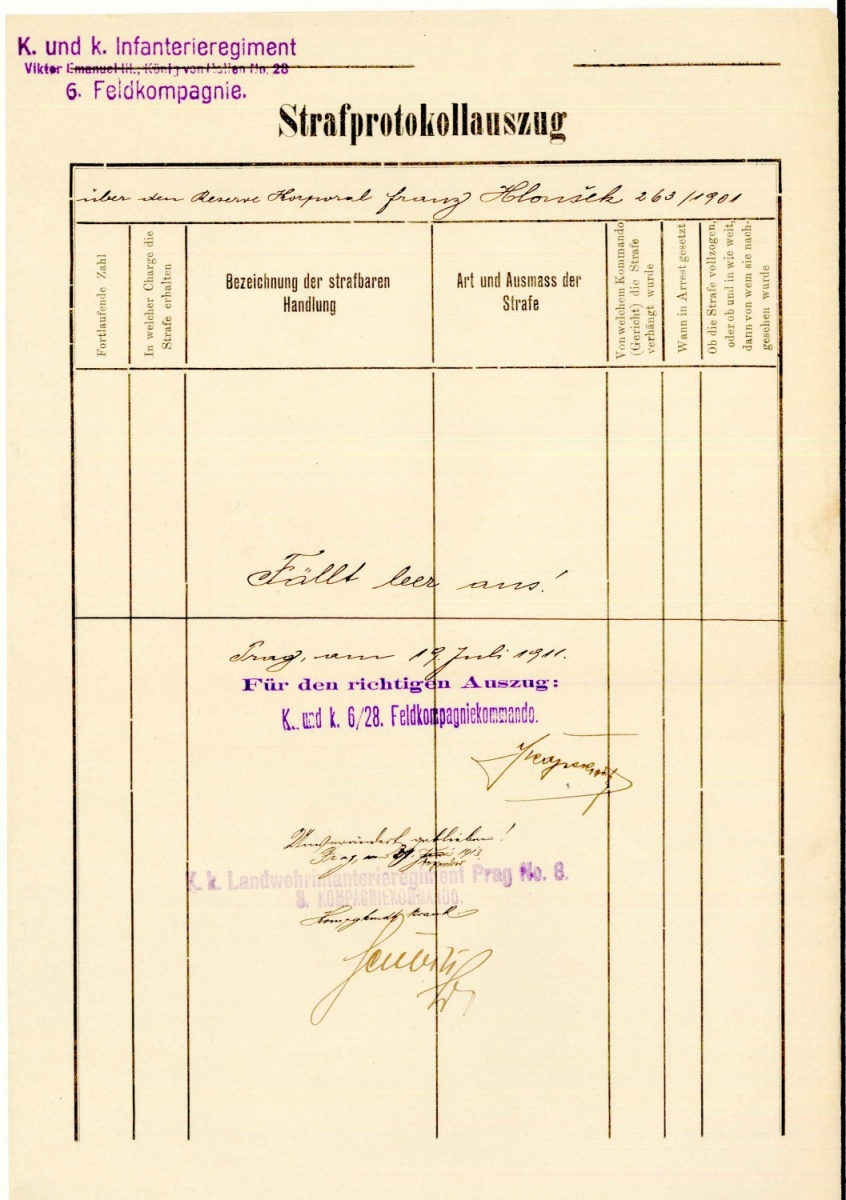 K. und k. Infanterieregiment
Viktor Emanuel III., König von Italien No. 28
6. Feldkompagnie.
Strafprotokollauszug
über den Reserve Korporal Franz Hloušek 263/1901
Fortlaufende Zahl
In welcher Charge die
Strafe erhalten
Bezeichnung der strafbaren
Handlung
Art und Ausmass der
Strafe
Von welchem Kommando
(Gericht) die Strafe
verhängt wurde
Wann in Arrest gesetzt
Ob die Strafe vollzogen,
oder ob und in wie weit,
dann von wem sie nach-
gesehen wurde
Fällt leer aus!
Prag, am 19. Juli 1911.
Für den richtigen Auszug:
K. und k. 6/28. Feldkompagniekommando.
Unverändert geblieben!
Prag am
K. k. Landwehrinfanterieregiment Prag No. 8.
KOMPAGNIEKOMMANDO.
krank.